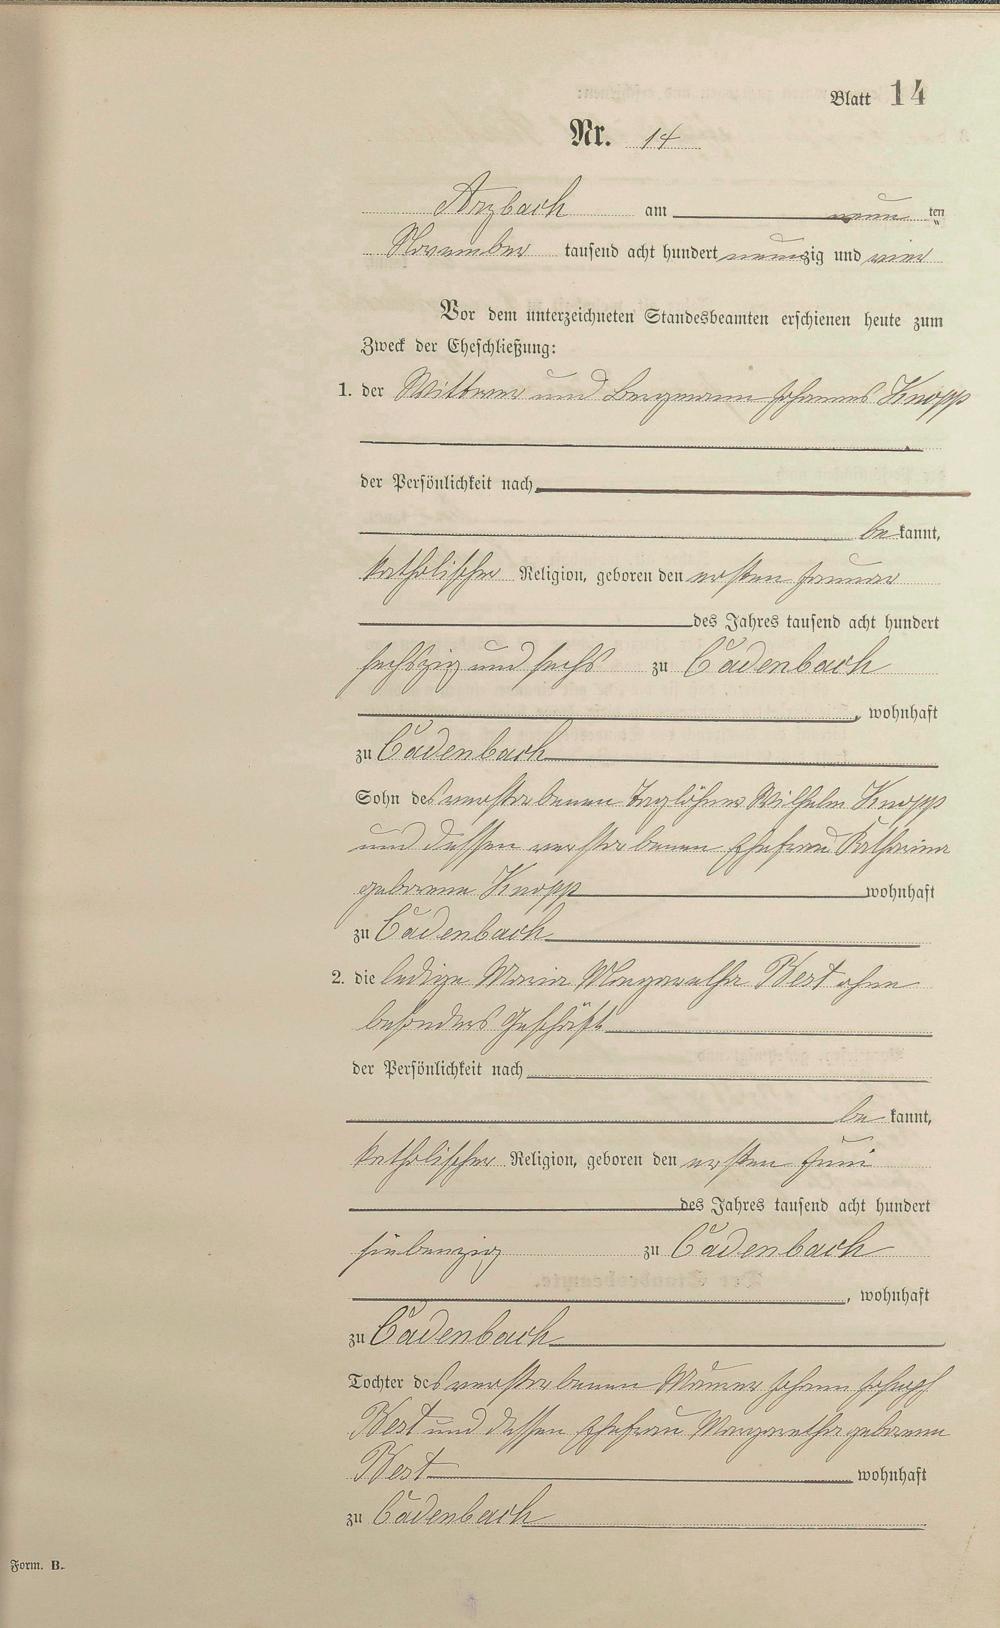 Blatt 14
Nr. 14
Arzbach am neun ten
November tausend acht hundert neunzig und vier
Vor dem unterzeichneten Standesbeamten erschienen heute zum
Zweck der Eheschließung:
1. der Wittwer und Bergmann Johannes Knopp
der Persönlichkeit nach
be kannt,
katholischer Religion, geboren den ersten Januar
des Jahres tausend acht hundert
sechszig und sechs zu Cadenbach
, wohnhaft
zu Cadenbach
Sohn des verstorbenen Taglöhner Wilhelm Knopp
und dessen verstorbenen Ehefrau Katharina
geborene Knopp wohnhaft
zu Cadenbach
2. die ledige Maria Margaretha Best ohne
besonders Geschäft
der Persönlichkeit nach
be kannt,
katholischer Religion, geboren den ersten Juni
des Jahres tausend acht hundert
siebenzig zu Cadenbach
, wohnhaft
zu Cadenbach
Tochter des verstorbenen Maurer Johann Joseph
Best und dessen Ehefrau Margaretha geborenen
Best wohnhaft
zu Cadenbach
Form. B.